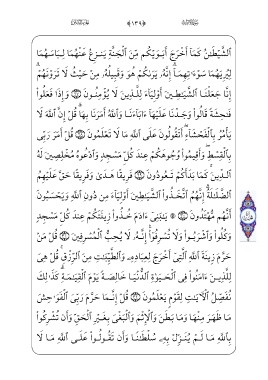 ﴿ ١٣٩ ﴾
ٱلشَّيْطَٰنُ كَمَآ أَخْرَجَ أَبَوَيْكُم مِّنَ ٱلْجَنَّةِ يَنزِعُ عَنْهُمَا لِبَاسَهُمَا
لِيُرِيَهُمَا سَوْءَٰتِهِمَآ إِنَّهُۥ يَرَىٰكُمْ هُوَ وَقَبِيلُهُۥ مِنْ حَيْثُ لَا تَرَوْنَهُمْ
إِنَّا جَعَلْنَا ٱلشَّيَٰطِينَ أَوْلِيَآءَ لِلَّذِينَ لَا يُؤْمِنُونَ ۝ وَإِذَا فَعَلُوا۟
فَٰحِشَةً قَالُوا۟ وَجَدْنَا عَلَيْهَآ ءَابَآءَنَا وَٱللَّهُ أَمَرَنَا بِهَا قُلْ إِنَّ ٱللَّهَ لَا
يَأْمُرُ بِٱلْفَحْشَآءِ أَتَقُولُونَ عَلَى ٱللَّهِ مَا لَا تَعْلَمُونَ ۝ قُلْ أَمَرَ رَبِّى
بِٱلْقِسْطِ وَأَقِيمُوا۟ وُجُوهَكُمْ عِندَ كُلِّ مَسْجِدٍ وَٱدْعُوهُ مُخْلِصِينَ لَهُ
ٱلدِّينَ كَمَا بَدَأَكُمْ تَعُودُونَ ۝ فَرِيقًا هَدَىٰ وَفَرِيقًا حَقَّ عَلَيْهِمُ
ٱلضَّلَٰلَةُ إِنَّهُمُ ٱتَّخَذُوا۟ ٱلشَّيَٰطِينَ أَوْلِيَآءَ مِن دُونِ ٱللَّهِ وَيَحْسَبُونَ
أَنَّهُم مُّهْتَدُونَ ۝ ۞ يَٰبَنِىٓ ءَادَمَ خُذُوا۟ زِينَتَكُمْ عِندَ كُلِّ مَسْجِدٍ
وَكُلُوا۟ وَٱشْرَبُوا۟ وَلَا تُسْرِفُوٓا۟ إِنَّهُۥ لَا يُحِبُّ ٱلْمُسْرِفِينَ ۝ قُلْ مَنْ
حَرَّمَ زِينَةَ ٱللَّهِ ٱلَّتِىٓ أَخْرَجَ لِعِبَادِهِۦ وَٱلطَّيِّبَٰتِ مِنَ ٱلرِّزْقِ قُلْ هِىَ
لِلَّذِينَ ءَامَنُوا۟ فِى ٱلْحَيَوٰةِ ٱلدُّنْيَا خَالِصَةً يَوْمَ ٱلْقِيَٰمَةِ كَذَٰلِكَ
نُفَصِّلُ ٱلْءَايَٰتِ لِقَوْمٍ يَعْلَمُونَ ۝ قُلْ إِنَّمَا حَرَّمَ رَبِّىَ ٱلْفَوَٰحِشَ
مَا ظَهَرَ مِنْهَا وَمَا بَطَنَ وَٱلْإِثْمَ وَٱلْبَغْىَ بِغَيْرِ ٱلْحَقِّ وَأَن تُشْرِكُوا۟
بِٱللَّهِ مَا لَمْ يُنَزِّلْ بِهِۦ سُلْطَٰنًا وَأَن تَقُولُوا۟ عَلَى ٱللَّهِ مَا لَا